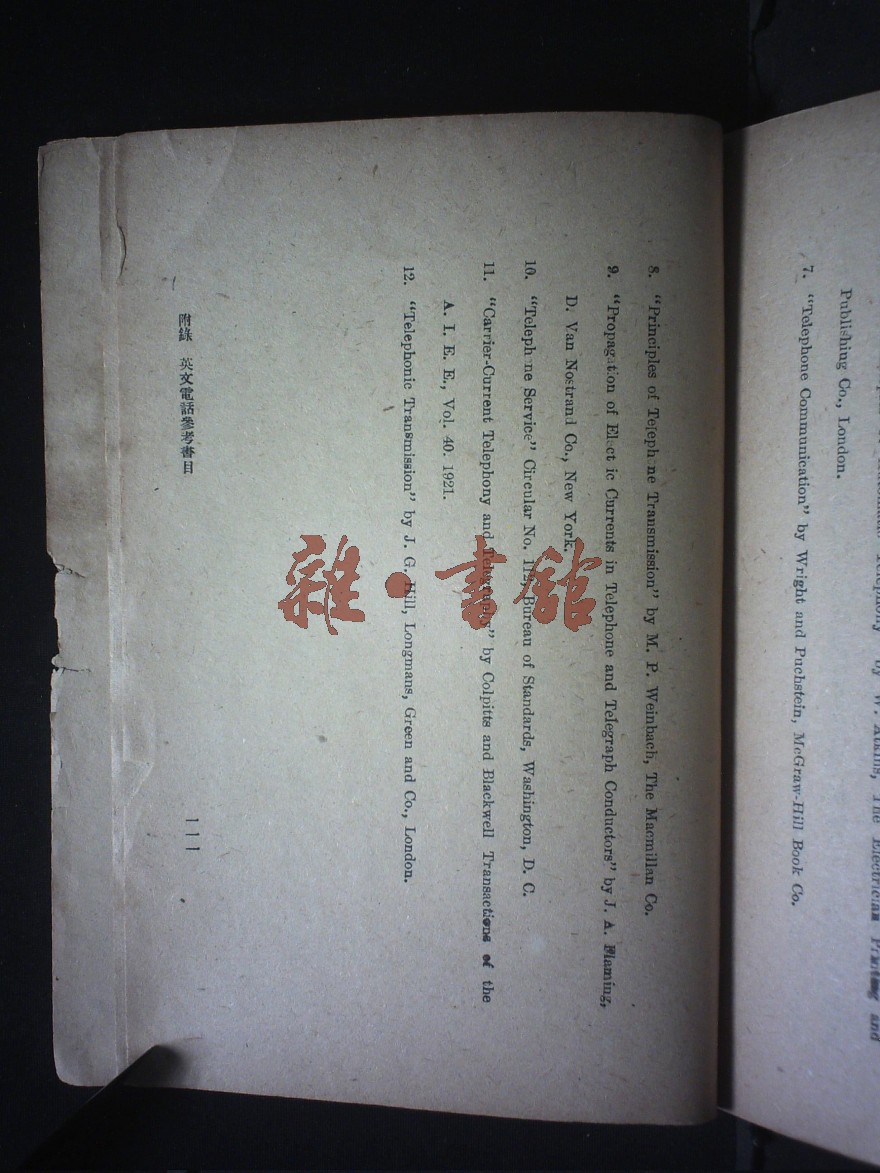 Telephony" by W. Atkins, The Electrician Printing and
Publishing Co., London.
7. "Telephone Communication" by Wright and Puchstein, McGraw-Hill Book Co.
8. "Principles of Teleph ne Transmission" by M. P. Weinbach, The Macmillan Co.
9. "Propagation of Elect ic Currents in Telephone and Telegraph Conductors" by J. A. Flaming,
D. Van Nostrand Co., New York.
10. "Teleph ne Service" Circular No. 112, Bureau of Standards, Washington, D. C.
11. "Carrier-Current Telephony and Telegraphy" by Colpitts and Blackwell Transactions of the
A. I. E. E., Vol. 40. 1921.
12. "Telephonic Transmission" by J. G. Hill, Longmans, Green and Co., London.
附錄 英文電話參考書目
111
雜·書館